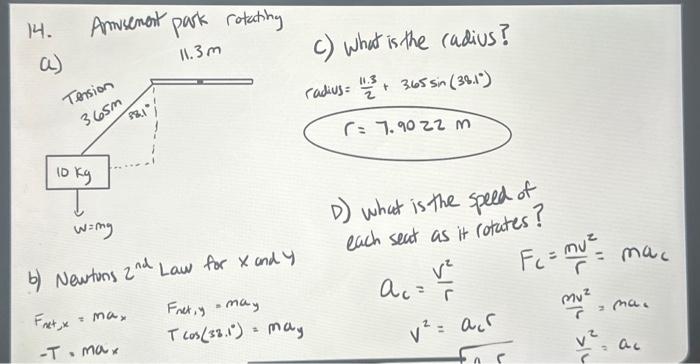 14. Amusement park rotating
a)
11.3m
Tension
3.65m
38.1°
10 kg
w=mg
b) Newtons 2nd Law for x and y
Fnet,x = max
-T = max
Fnet,y = may
T cos(38.1°) = may
c) what is the radius?
radius = 11.3/2 + 3.65 sin(38.1°)
r = 7.9022 m
D) what is the speed of
each seat as it rotates?
ac = v²/r
v² = acr
Fc = mv²/r = mac
mv²/r = mac
v²/r = ac